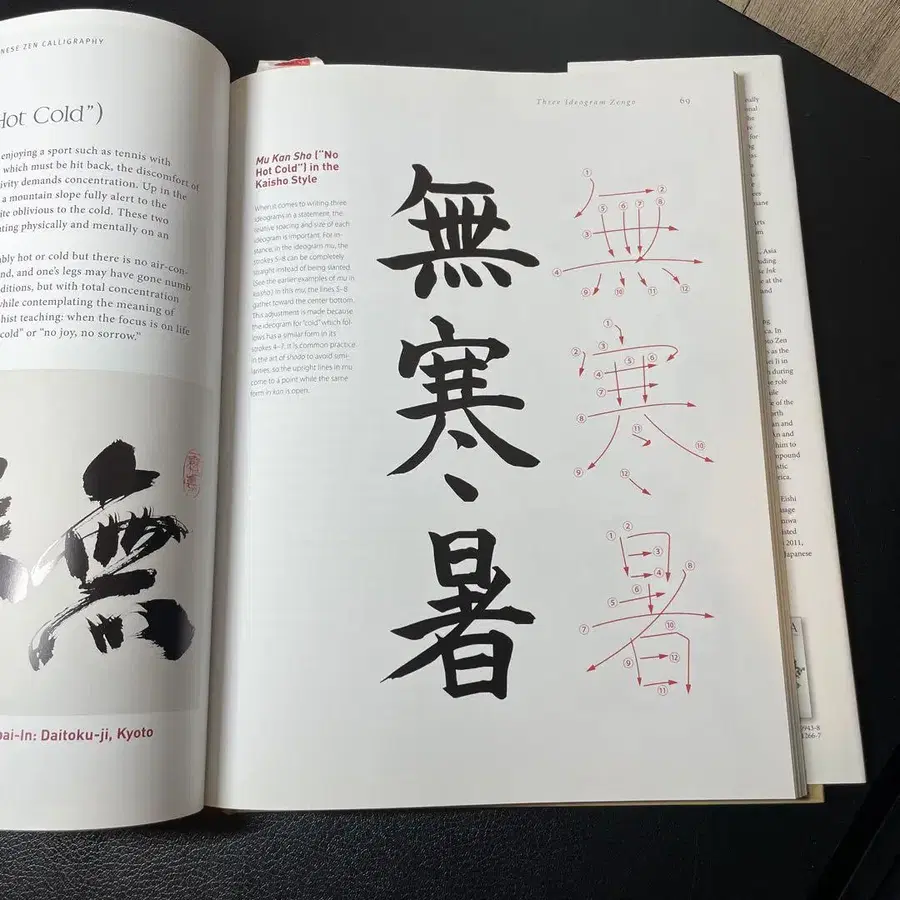 NESE ZEN CALLIGRAPHY
Hot Cold”)
enjoying a sport such as tennis with
which must be hit back, the discomfort of
ivity demands concentration. Up in the
a mountain slope fully alert to the
ite oblivious to the cold. These two
ting physically and mentally on an
bly hot or cold but there is no air-con-
nd, and one’s legs may have gone numb
ditions, but with total concentration
while contemplating the meaning of
hist teaching: when the focus is on life
cold” or “no joy, no sorrow.”
無
pai-In: Daitoku-ji, Kyoto
Three Ideogram Zengo 69
Mu Kan Sho (“No
Hot Cold”) in the
Kaisho Style
When it comes to writing three
ideograms in a statement, the
relative spacing and size of each
ideogram is important. For in-
stance, in the ideogram mu, the
strokes 5–8 can be completely
straight instead of being slanted.
(See the earlier examples of mu in
kaisho.) In this mu, the lines 5–8
gather toward the center bottom.
This adjustment is made because
the ideogram for “cold” which fol-
lows has a similar form in its
strokes 4–7. It is common practice
in the art of shodo to avoid simi-
larities, so the upright lines in mu
come to a point while the same
form in kan is open.
無
寒
暑
1 2 3 4 5 6 7 8 9 10 11 12
1 2 3 4 5 6 7 8 9 10 11 12
1 2 3 4 5 6 7 8 9 10 11 12
Asia
Zen
during
role
of the
and
him to
Eishi
2011,
Japanese
2943-8
1266-7